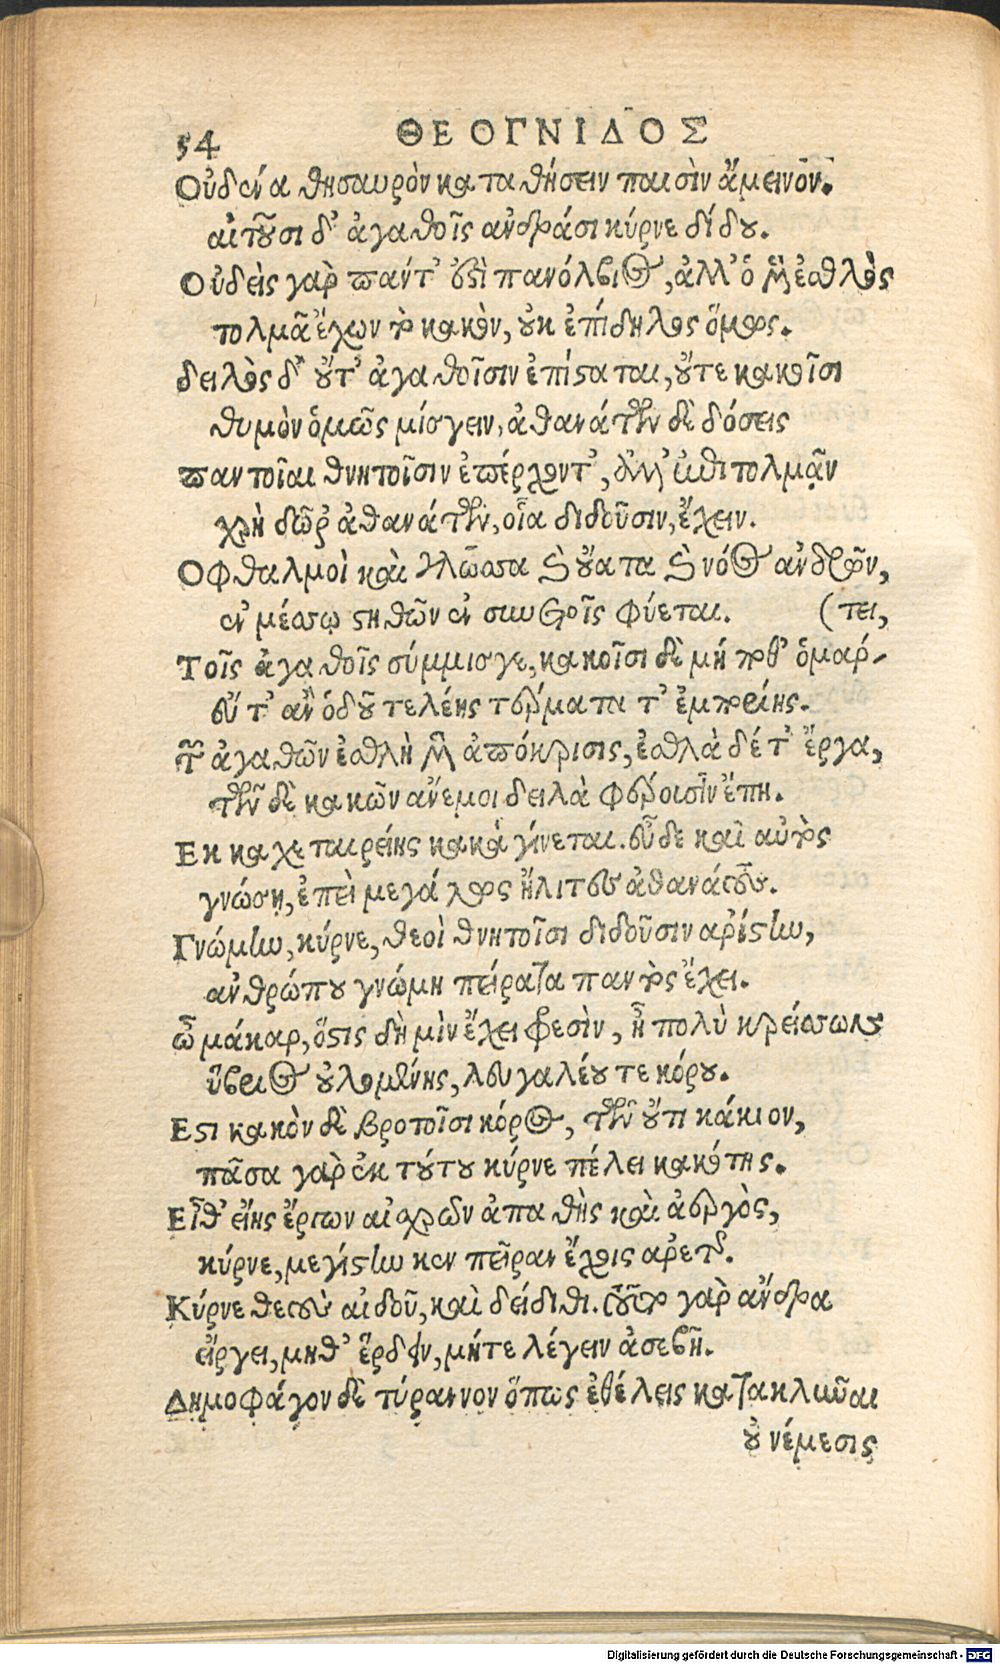 54 ΘΕΟΓΝΙΔΟΣ
Οὐδένα θησαυρὸν καταθήσειν παισὶν ἄμεινον.
αἰτοῦσι δ' ἀγαθοῖς ἀνδράσι κύρνε δίδου.
Οὐδεὶς γὰρ πάντ' ἐστὶ πανόλβιος, ἀλλ' ὁ μὲν ἐσθλὸς
τολμᾶ ἔχων τὸ κακὸν, οὐκ ἐπίδηλος ὅμως.
δειλὸς δ' οὔτ' ἀγαθοῖσιν ἐπίσταται, οὔτε κακοῖσι
θυμὸν ὁμῶς μίσγειν, ἀθανάτων δὲ δόσεις
παντοῖαι θνητοῖσιν ἐπέρχοντ', ἀλλ' ἐπιτολμᾷν
χρὴ δῶρ' ἀθανάτων, οἷα διδοῦσιν, ἔχειν.
Οφθαλμοὶ καὶ γλῶσσα καὶ οὔατα καὶ νόος ἀνδρῶν,
ἐν μέσσῳ στηθῶν ἐν συνετοῖς φύεται. (τει,
Τοῖς ἀγαθοῖς σύμμισγε, κακοῖσι δὲ μή ποθ' ὁμάρ-
εὖτ' ἂν ὁδοῦ τελέῃς τέρματα τ' ἐμπορίης.
τῶν ἀγαθῶν ἐσθλὴ μὲν ἀπόκρισις, ἐσθλὰ δέ τ' ἔργα,
τῶν δὲ κακῶν ἄνεμοι δειλὰ φέροισιν ἔπη.
Εκ καχεταιρείης κακὰ γίνεται. εὖ δὲ καὶ αὐτὸς
γνώσῃ, ἐπεὶ μεγάλους ἤλιτες ἀθανάτους.
Γνώμην, κύρνε, θεοὶ θνητοῖσι διδοῦσιν ἀρίστην,
ἀνθρώπου γνώμη πείρατα παντὸς ἔχει.
ὦ μάκαρ, ὅστις δὴ μὶν ἔχει φρεσὶν, ἦ πολὺ κρείσσων
ὕβριος οὐλομένης, λευγαλέου τε κόρου.
Εστι κακὸν δὲ βροτοῖσι κόρος, τῶν οὔτι κάκιον,
πᾶσα γὰρ ἐκ τούτου κύρνε πέλει κακότης.
Εἴθ' εἴης ἔργων αἰσχρῶν ἀπαθὴς καὶ ἀεργὸς,
κύρνε, μεγίστην κεν πεῖραν ἔχοις ἀρετῆς.
Κύρνε θεοὺς αἰδοῦ, καὶ δείδιθι. τοῦτο γὰρ ἄνδρα
εἴργει, μηθ' ἕρδειν, μήτε λέγειν ἀσεβῆ.
Δημοφάγον δὲ τύραννον ὅπως ἐθέλεις κατακλῖναι
οὐ νέμεσις
Digitalisierung gefördert durch die Deutsche Forschungsgemeinschaft - DFG